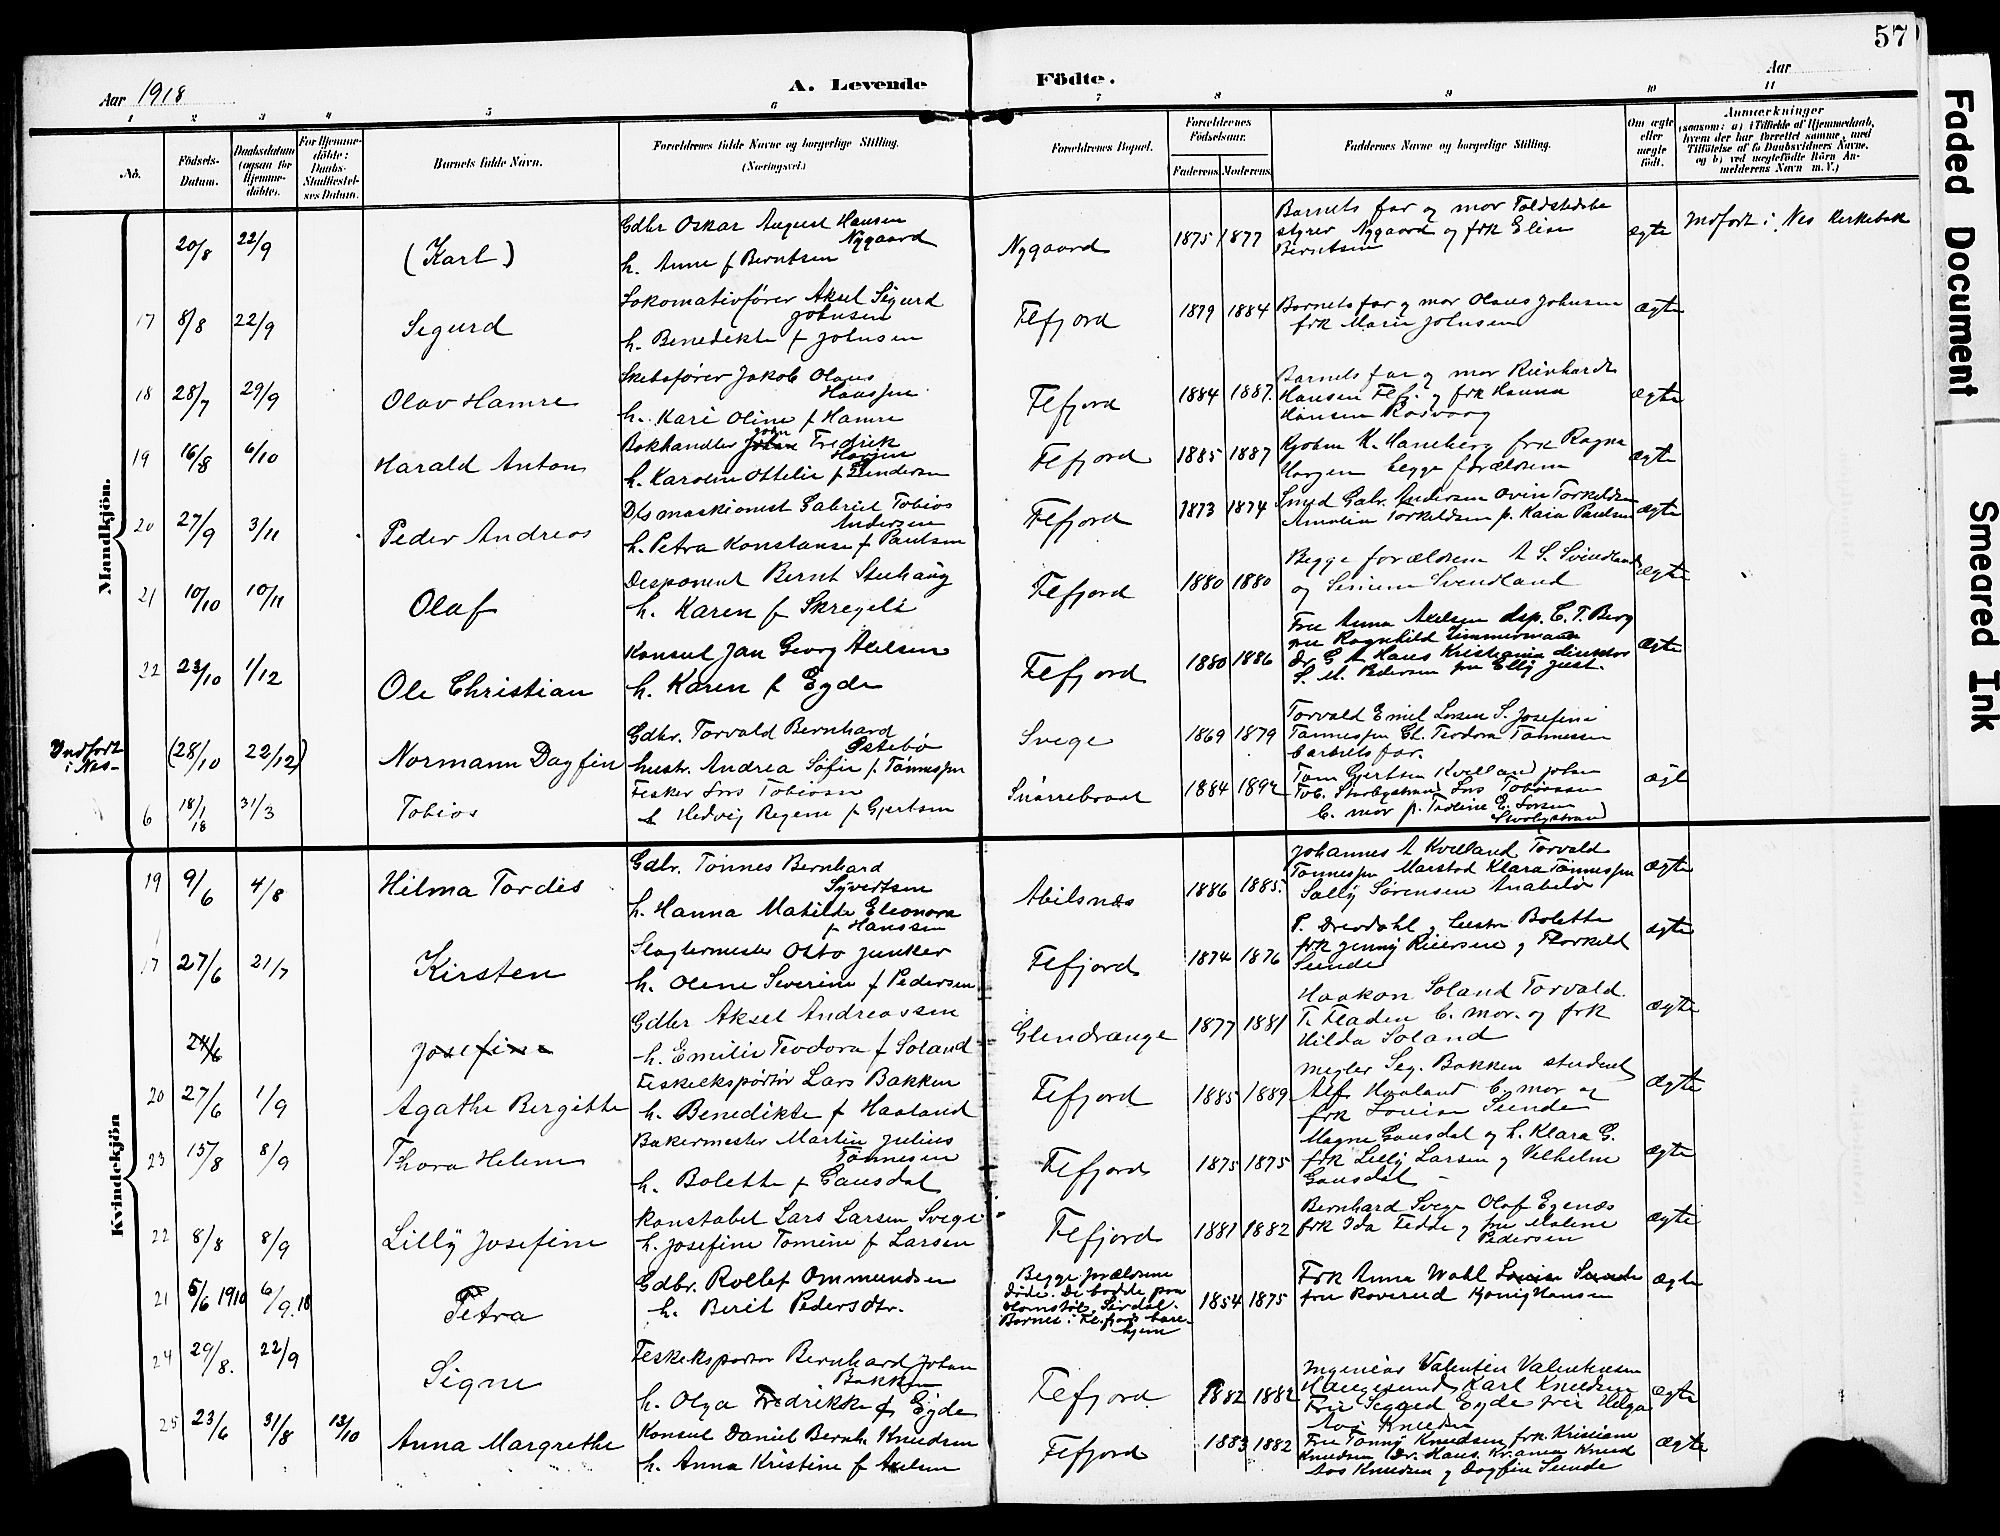 57
Aar 1918
A. Levende Födte.
Aar
1 2 3 4 5 6 7 8 9 10 11
No.
Födsels-Datum.
Daabsdatum (ogsaa for Hjemmedöbte).
For Hjemmedöbte: Daabs-Stadfæstelses Datum.
Barnets fulde Navn.
Forældrenes fulde Navne og borgerlige Stilling. (Næringsvei.)
Forældrenes Bopæl.
Forældrenes Födselsaar.
Faderens. Moderens.
Faddernes Navne og borgerlige Stilling.
Om ægte eller uægte födt.
Anmærkninger
(saasom: a) i Tilfælde af Hjemmedaab, hvem der har forrettet samme, med Tilföielse af to Daabsvidners Navne, og b) ved uægtefödte Börn Anmelderens Navn m.V.)
Mandkjön.
20/8 22/9 (Karl) Gdbr Oskar August Hansen Nygaard
h. Anne f Berntsen Nygaard 1875 1877 Barnets far og mor Toldstedsbestyrer Nygaard og frk Elise Berntsen ægte Indført i Nes Kirkebok
17 8/8 22/9 Sigurd Lokomotivfører Aksel Sigurd Johnsen
h. Benedikte f Johnsen Flefjord 1879 1884 Barnets far og mor Olaus Johnsen frk Marie Johnsen ægte
18 28/7 29/9 Olav Hamre Skibsfører Jakob Olaus
h. Kari Oline f Hamre Flefjord 1884 1887. Barnets far og mor Reinhardt Hansen Flfj. og frk Hanna Hansen ægte
19 16/8 6/10 Harald Anton Bokhandler John Fredrik
h. Karoline Ottelie f Flefjord 1885 1887 K. Haneberg frk Ragna begge forældrene ægte
20 27/9 3/11 Peder Andreas Gabriel Tobias Andersen
h. Petra Konstanse f Paulsen Flefjord 1873 1874 Smed Gabr. Andersen Torkeldsen Amalia Torkeldsen f. Kaia Paulsen ægte
21 10/10 10/11 Olaf Disponent Bernt Stenhaug
h. Karen f Skregeli Flefjord 1880 1880 Begge forældrene A S. Svindland og Simine Svendland ægte
22 23/10 1/12 Ole Christian Konsul Jan Georg Axelsen
h. Karen f Eyde Flefjord 1880 1886 Fru Anna Axelsen dsp. C. T. Berg fru Ragnhild Zimmermann Dr G A Haus Kristiania direktør S. M. Pedersen fru Elly Just. ægte
Indført i Nes (28/10 22/12) Normann Dagfin Gdbr. Torvald Bernhard
hustr. Andrea Sofie f. Tønnessen Svege 1869 1879 Torvald Emil Larsen S. Josefine Tønnessen Teodora Tønnesen barnets far. ægte
6 18/1 18 31/3 Tobias Fisker Lars Tobiassen
h Hedvig Regine f Gjertsen 1884 1892 Tom Gjertsen Kvelland Johan Lars Tobiassen B. mor f. E. Larsen ægt
Kvindekjön
19 9/6 4/8 Hilma Tordis Gdbr. Tönnes Bernhard Syvertsen
h. Hanna Matilde Eleonora f Hanssen Abilsnæs 1886 1885. Johannes A Kvelland Torvald Tönnessen Klara Tönnessen Sally Sørensen ægte
17 27/6 21/7 Kirsten Slagtermester Otto Junker
h. Olene Severine f Pedersen Flefjord 1874 1876 P. Drevdahl og hustru Bolette frk Jenny Reiersen og Thorkeld Sunde ægte
24/6 Josefine Gdbr Aksel Andreassen
h. Emilie Teodora f Soland Glendrange 1877 1881 Haakon Soland Torvald T. Fladen B. mor. og frk Hilda Soland ægte
20 27/6 1/9 Agathe Bergitte Fiskeeksportør Lars Bakken
h. Benedikte f Haaland Flefjord 1885 1889 Megler Sig. Bakken student Alf Haaland B mor og frk Louise Sunde ægte
23 15/8 8/9 Thora Helene Bakermester Martin Julius Tønnesen
h. Bolette f Gausdal Flefjord 1875 1875 Magne Gausdal og h. Klara G. frk Lilly Larsen og Vilhelm Gausdal ægte
22 8/8 8/9 Lilly Josefine Konstabel Lars Larsen Svege
h. Josefine Tomine f Larsen Flefjord 1881 1882 Bernhard Svege Olaf Egenæs frk Ida Fedde og fru Malene Pedersen ægte
21 5/6 1910 6/9.18 Petra Gdbr. Rollef Ommundsen
h. Berit Pedersdtr. Begge forældrene døde. De bodde paa Sirdal. Barnet i Flefjords barnehjem 1854 1875 Frk Anna Wahl Louise Sunde fru Roverud Konig Hansen ægte
24 29/8. 22/9 Signe Fiskeksportør Bernhard Johan Bakken
h. Olga Fredrikke f Eyde Flefjord 1882 1882 Ingeniør Valentin Valentinsen Haugesund, Karl Knudsen Fru Sigrid Eyde fru Helga Aas Knudsen ægte
25 23/6 31/8 13/10 Anna Margrethe Konsul Daniel Bernh. Knudsen
h. Anna Kristine f Axelsen Flefjord 1883 1882 Fru Tonny Knudsen frk Kristiane Knudsen Dr. Haus. Kr.ania Knud Aas Knudsen og Dagfin Sunde ægte
Faded Document
Smeared Ink